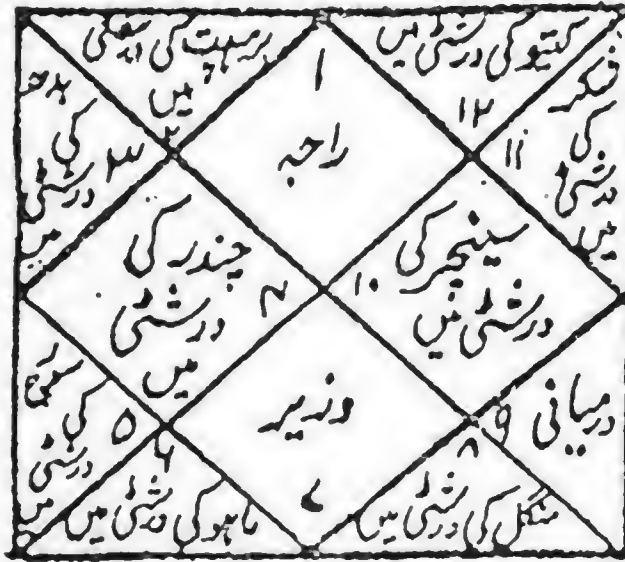 ۱
راجہ
برسپت کی درشٹی
میں
۲
بدھ
کی
۳
درشٹی
میں
چندر کی
۴
درشٹی
میں
سورج
کی
۵
درشٹی
میں
۶
راہو کی درشٹی میں
وزیر
۷
۸
منگل کی درشٹی میں
۹
درمیانی
سینچر کی
۱۰
درشٹی میں
شکر
۱۱
کی
درشٹی
میں
کیتو کی درشٹی میں
۱۲